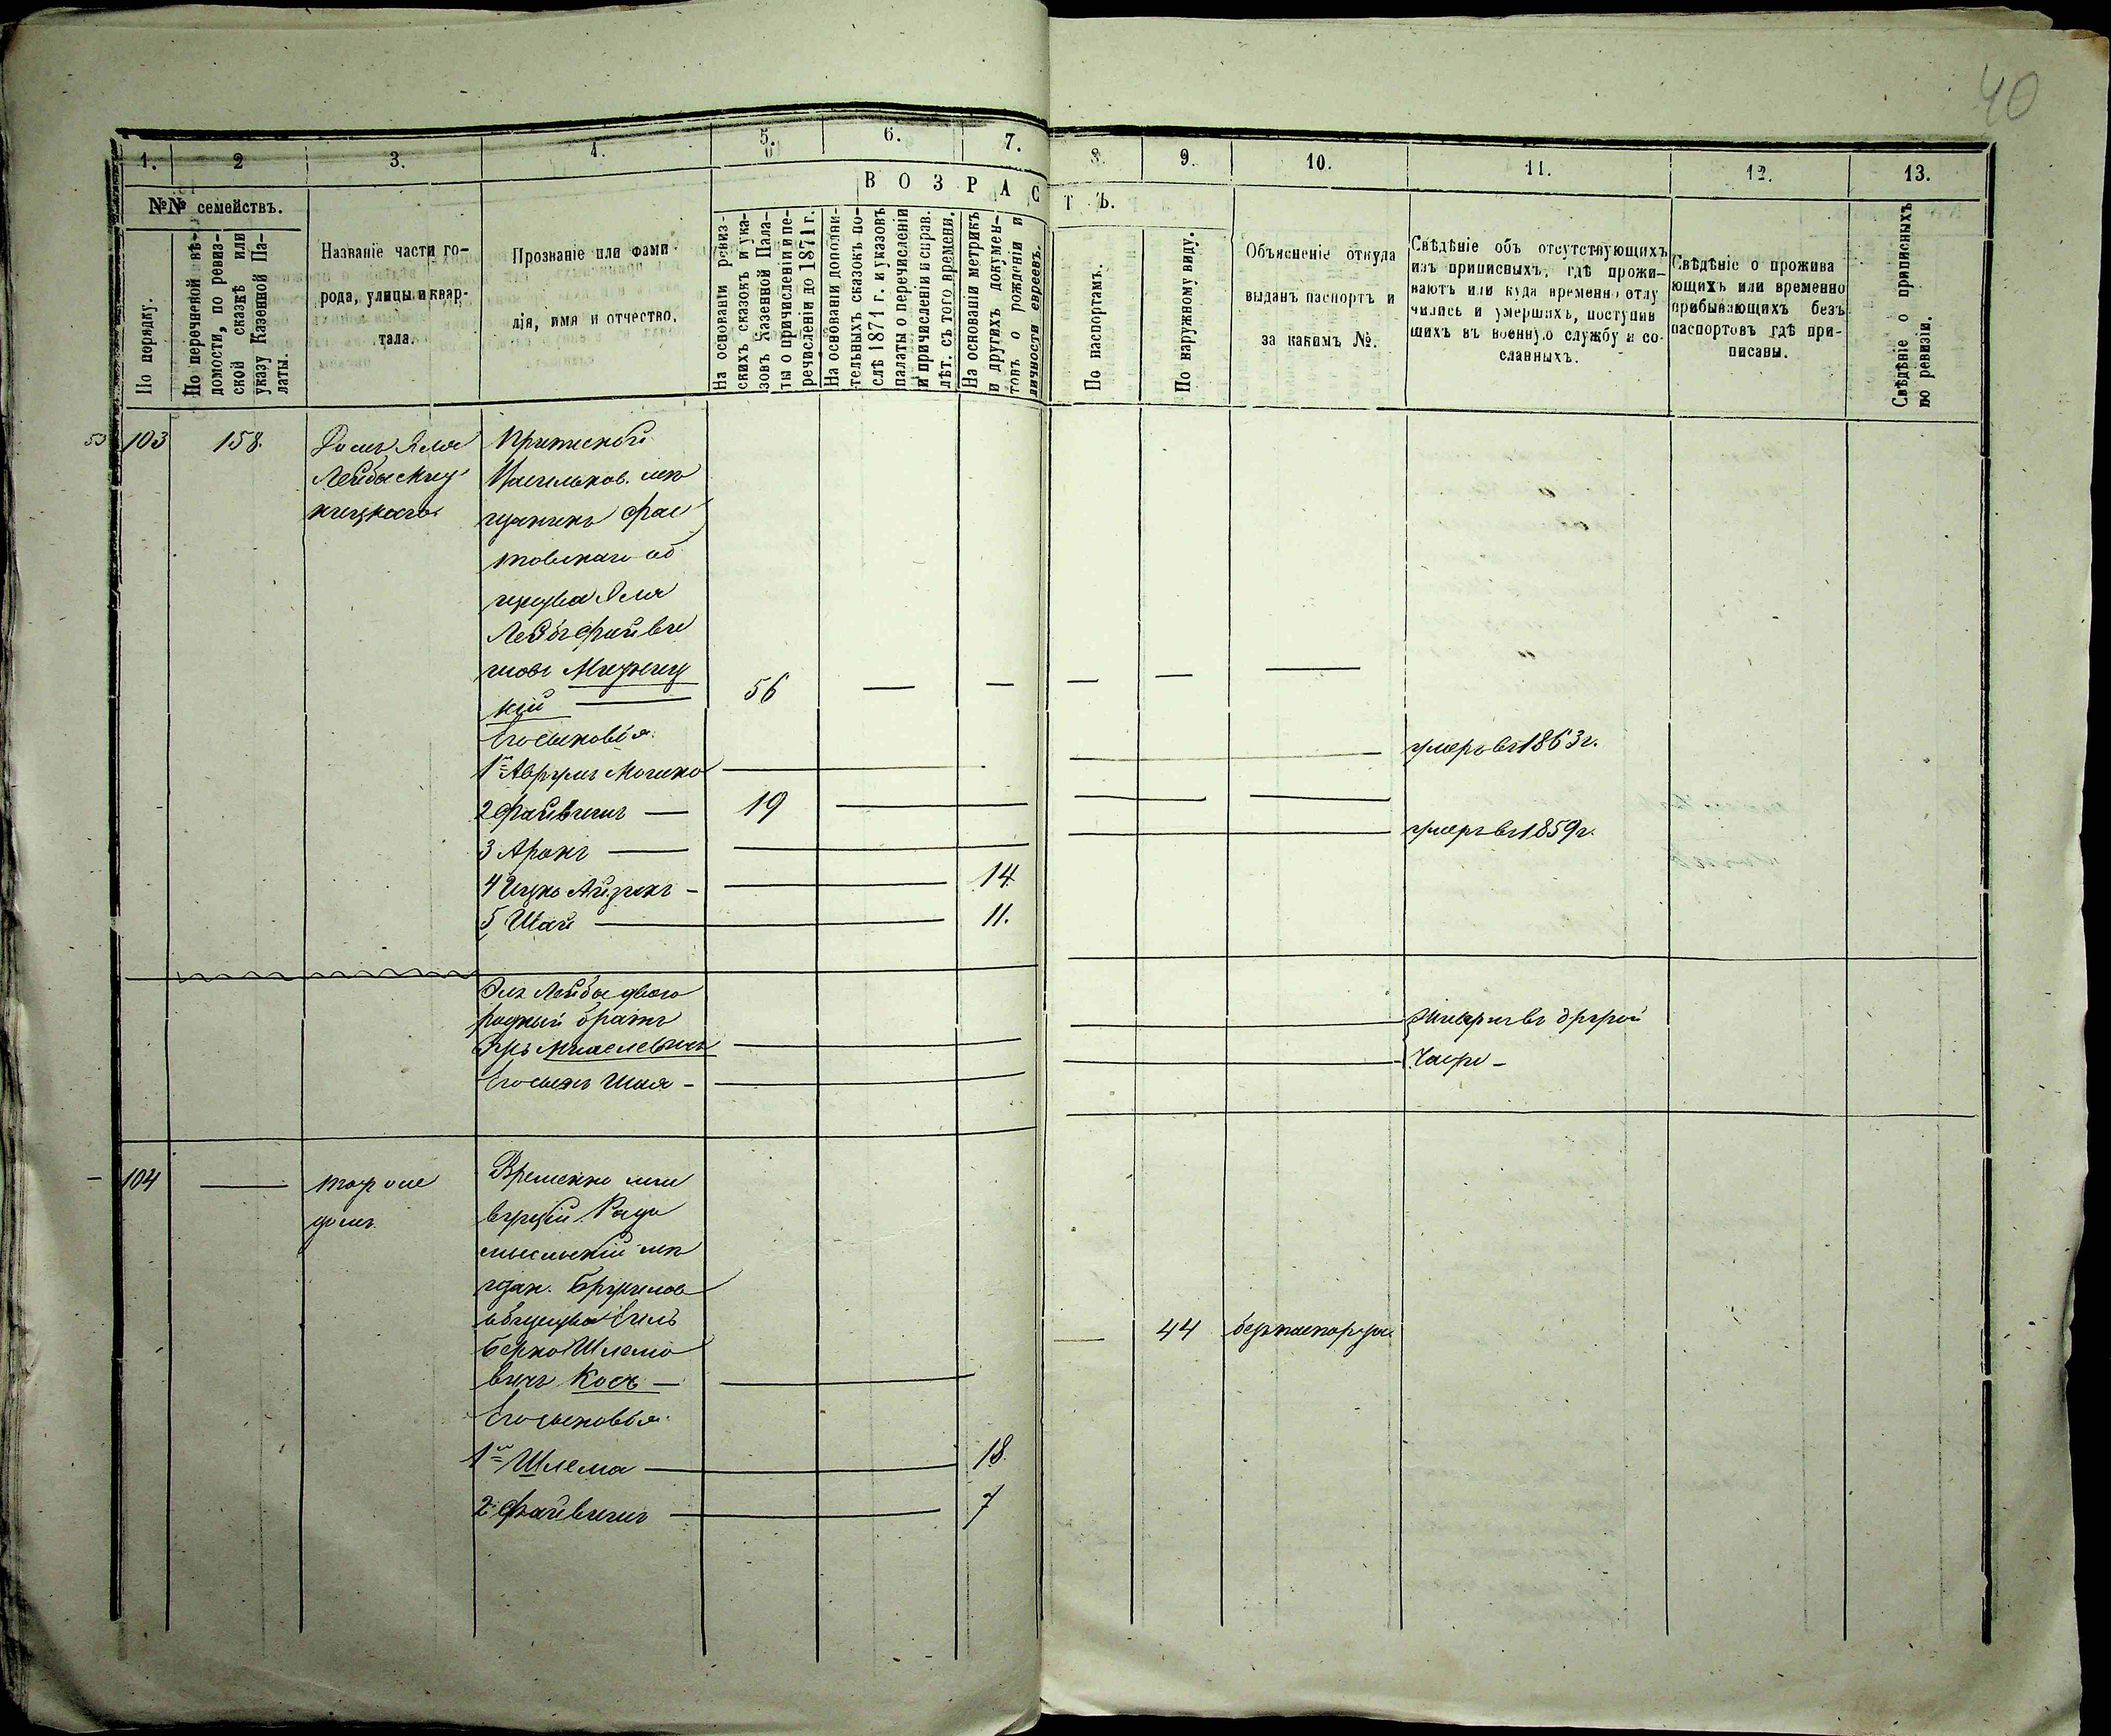 40
1.
2
3.
4.
5.
6.
7.
8.
9.
10.
11.
12.
13.
№№ семействъ.
По порядку.
По перечневой вѣ-
домости, по ревиз-
ской сказкѣ или
указу Казенной Па-
латы.
Названіе части го-
рода, улицы и квар-
тала.
Прозваніе или фами-
лія, имя и отчество.
В О З Р А С Т Ъ.
На основаніи ревиз-
скихъ сказокъ и ука-
зовъ Казенной Пала-
ты о причисленіи и пе-
речисленіи до 1871 г.
На основаніи дополни-
тельныхъ сказокъ по-
слѣ 1871 г. и указовъ
палаты о перечисленіи
и причисленіи и справ.
лѣт. съ того времени.
На основаніи метрикъ
и другихъ докумен-
товъ о рожденіи и
личности евреевъ.
По паспортамъ.
По наружному виду.
Объясненіе откуда
выданъ паспортъ и
за какимъ №.
Свѣдѣніе объ отсутствующихъ
изъ приписныхъ, гдѣ прожи-
ваютъ или куда временно отлу
чились и умершихъ, поступив
шихъ въ военную службу и со-
сланныхъ.
Свѣдѣніе о прожива
ющихъ или временно
прибывающихъ безъ
паспортовъ гдѣ при-
писаны.
Свѣдѣніе о приписныхъ
по ревизіи.
53 103 158.
Домъ Эля
Лейбы Миз
ницкаго
Приписной
Васильков. мѣ
щанинъ Фас
товскаго об
щества Эля
Лейбъ Файвы
шовъ Мизниц
кій — 56 — — — — —
Его сыновья
1й Аврумъ Мошко — умеръ въ 1863 г.
2 Файвишъ — 19 —
3 Аронъ — умеръ въ 1859 г.
4 Ицко Айзикъ — 14
5 Шая — 11.
Эля Лейбы двою
родный братъ
Мошелевичъ —
Его сынъ Шая —
въ другой
Части —
— 104 —
тотъ же
домъ
Временно жи
вущій Радо
мысльскій мѣ
щан. Брусилов
общества Ёиль
Берко Шлемо
вичъ Косъ — — 44 безъ паспорта
Его сыновья
1й Шлема — 18.
2 Файвишъ — 7